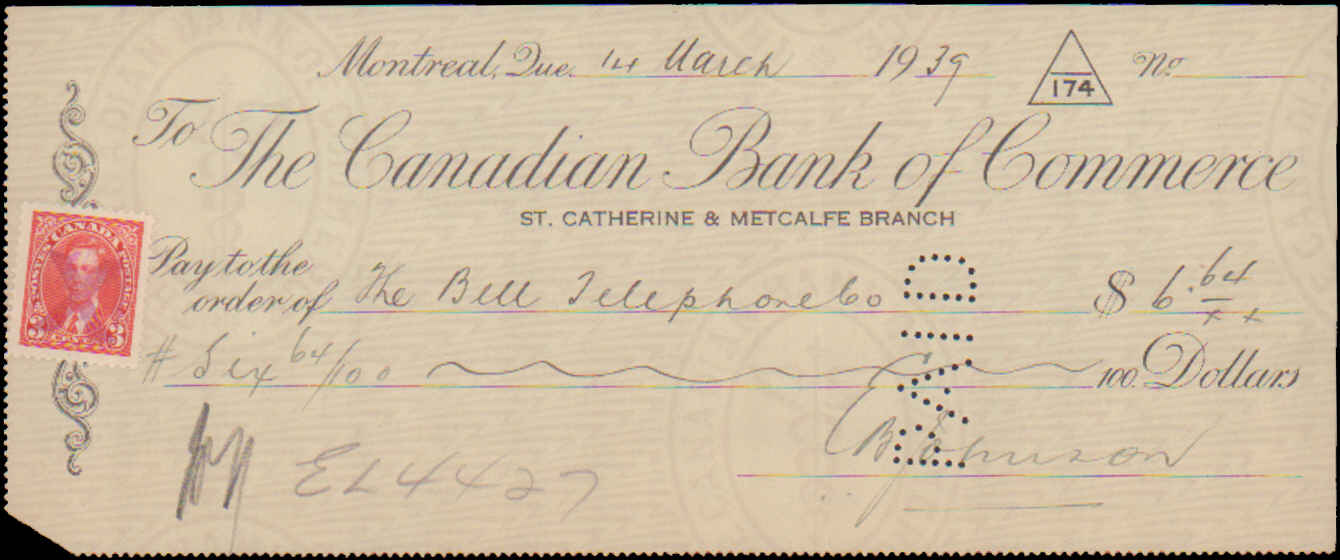 Montreal, Que. 14 March 1939 174 No.
To The Canadian Bank of Commerce
ST. CATHERINE & METCALFE BRANCH
POSTES CANADA POSTAGE
3 CENTS 3
Pay to the
order of The Bell Telephone Co $ 6.64
# Six 64/100 100 Dollars
PAID
Johnson
EL4427